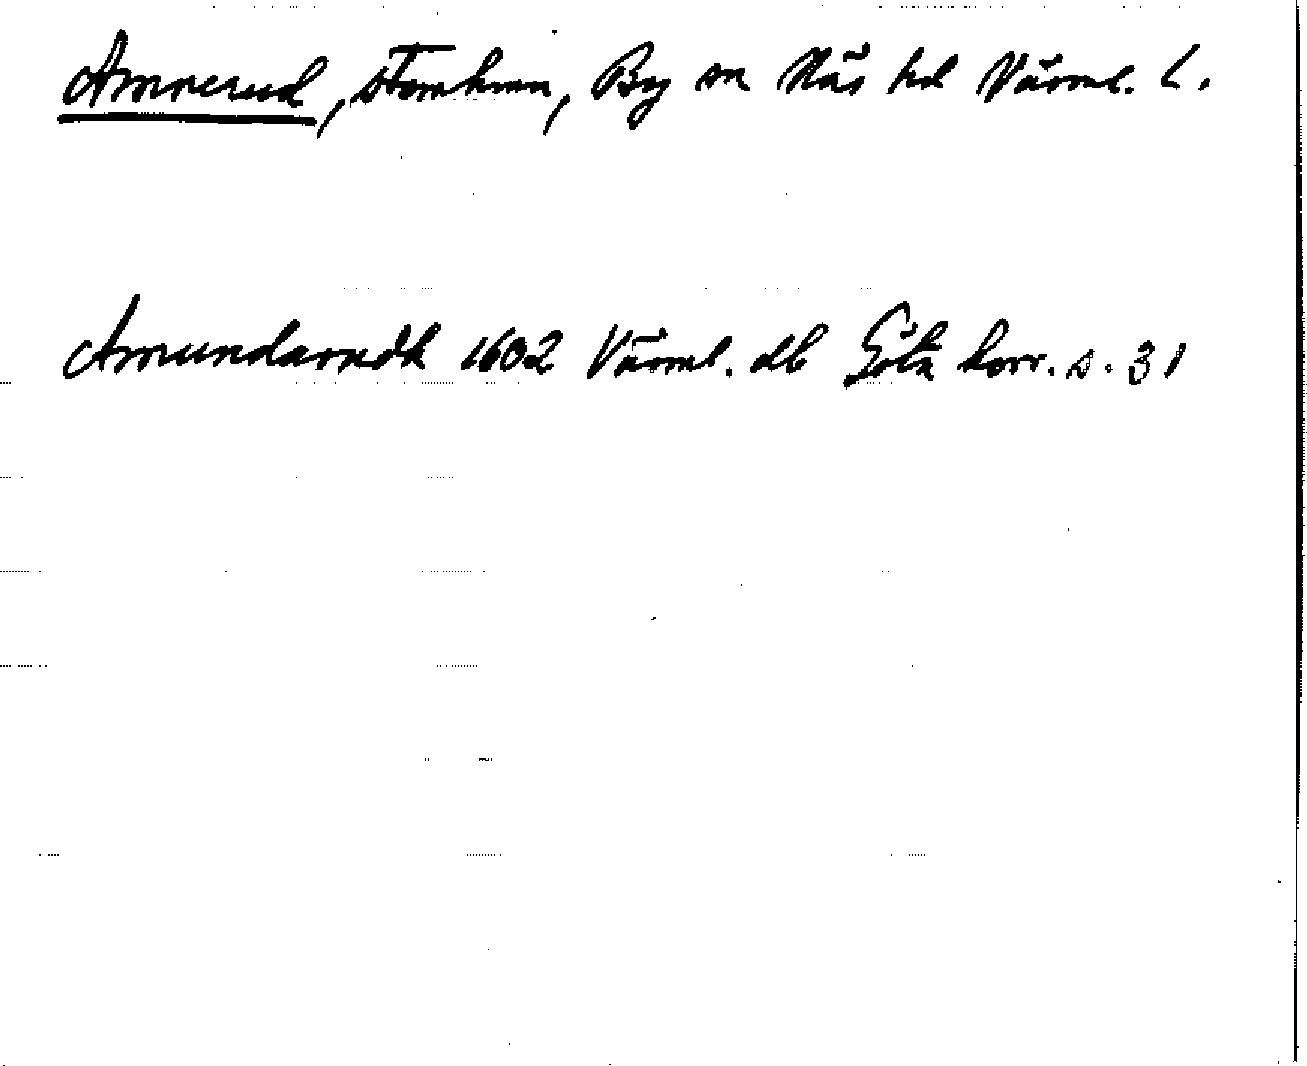 Amnerud, stomhmn, By sn Näs hd Värml. L.
Amundarudh 1602 Värml. db Göta horr. s. 31